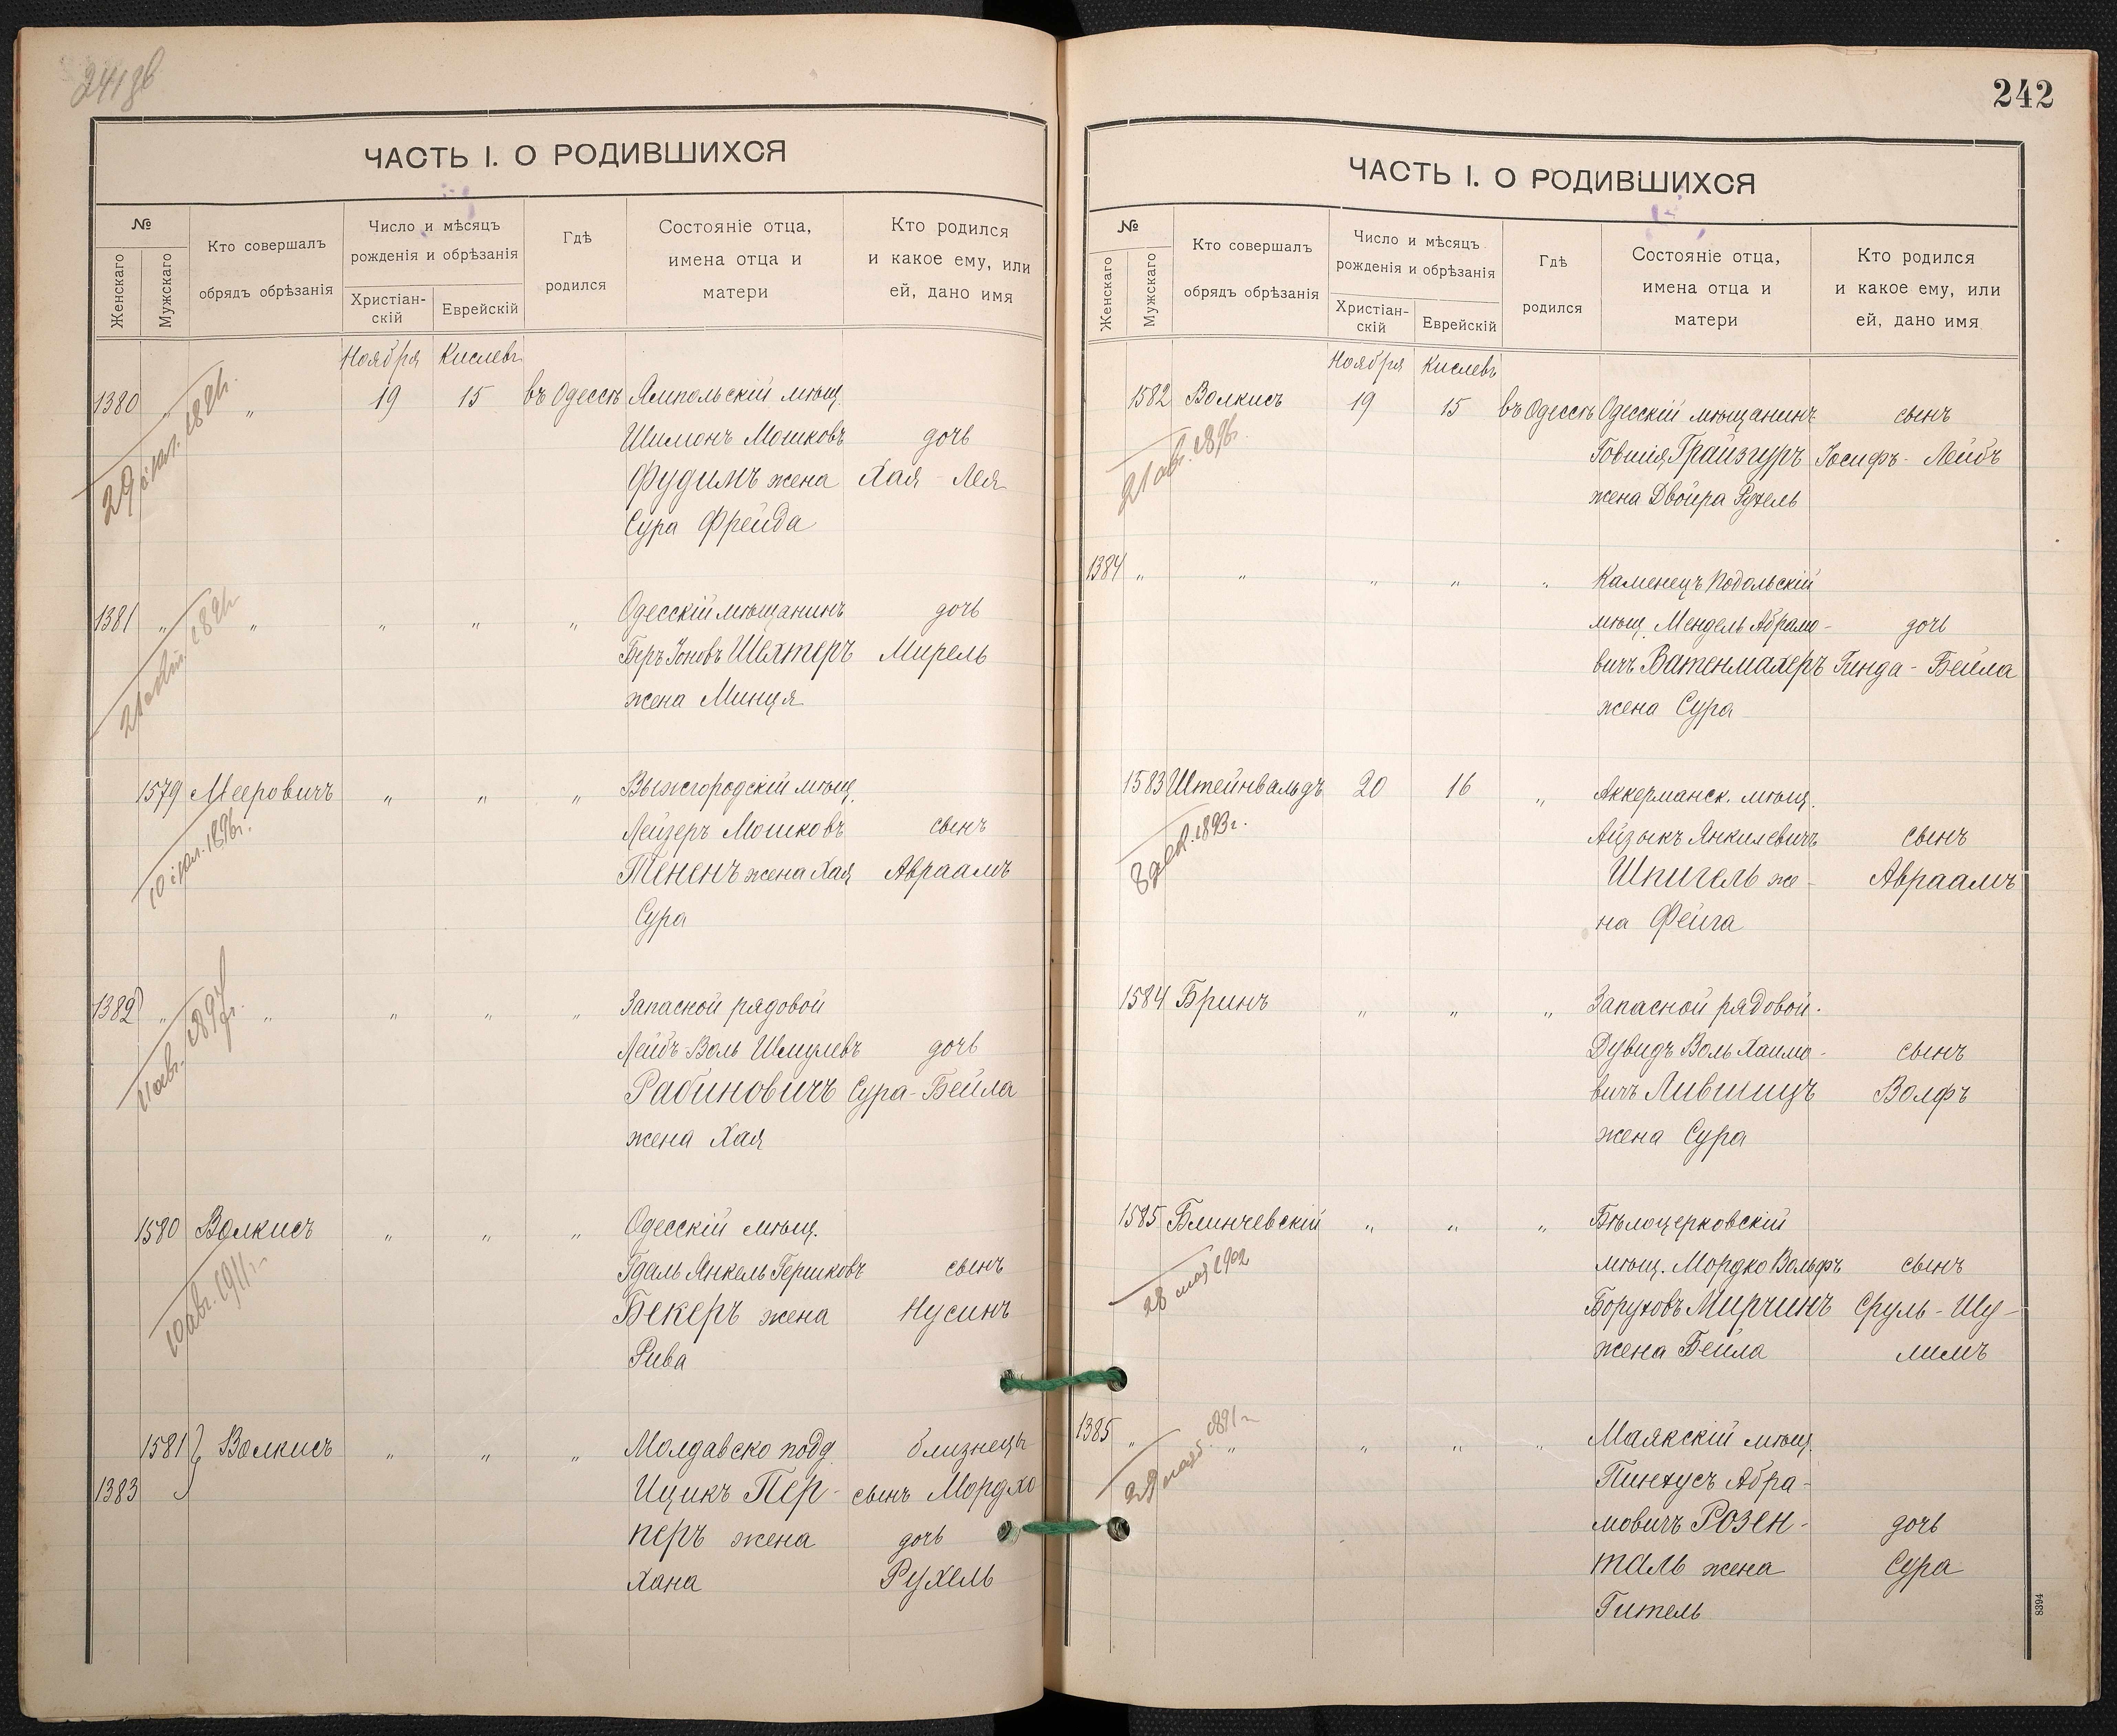 241 об
ЧАСТЬ I. О РОДИВШИХСЯ
№
Женскаго
Мужскаго
Кто совершалъ
обрядъ обрѣзанія
Число и мѣсяцъ
рожденія и обрѣзанія
Христіан-
скій
Еврейскій
Гдѣ
родился
Состояніе отца,
имена отца и
матери
Кто родился
и какое ему, или
ей, дано имя
Ноября Кислевъ
1380 „ „ 19 15 въ Одессѣ Ямпольскій мѣщ.
Шимонъ Мошковъ дочь
Фудимъ жена Хая - Лея
Сура Фрейда
1381 „ „ „ „ „ Одесскій мѣщанинъ дочь
Беръ Іоновъ Шехтеръ Мирель
жена Минця
1579 Мееровичъ „ „ „ Вышгородскій мѣщ.
10 1896г.
Лейзеръ Мошковъ сынъ
Тененъ жена Хая Авраамъ
Сура
1382 „ „ „ „ „ Запасной рядовой
Лейбъ-Воль Шмулевъ дочь
Рабиновичъ Сура-Бейла
жена Хая
1580 Волкисъ „ „ „ Одесскій мѣщ.
10 авг. 1911г.
Гдаль Янкель Гершковъ сынъ
Бекеръ жена Нусинъ
Рива
1581 Волкисъ „ „ „ Молдавско подд. близнецы
1383 Ицикъ Пер- сынъ Мордко
перъ жена дочь
Хана Рухель
242
ЧАСТЬ I. О РОДИВШИХСЯ
№
Женскаго
Мужскаго
Кто совершалъ
обрядъ обрѣзанія
Число и мѣсяцъ
рожденія и обрѣзанія
Христіан-
скій
Еврейскій
Гдѣ
родился
Состояніе отца,
имена отца и
матери
Кто родился
и какое ему, или
ей, дано имя
Ноября Кислевъ
1582 Волкисъ 19 15 въ Одессѣ Одесскій мѣщанинъ сынъ
21 авг. 1896г.
Товшія Грайзгуръ Іосифъ - Лейбъ
жена Двойра Рухель
1384 „ „ „ „ „ Каменецъ Подольскій
мѣщ. Мендель Абрамо- дочь
вичъ Ватенмахеръ Гинда - Бейла
жена Сура
1583 Штейнвальдъ 20 16 „ Аккерманск. мѣщ.
8 дек. 1893г.
Айзыкъ Янкилевичъ сынъ
Шпигель же- Авраамъ
на Фейга
1584 Бринъ „ „ „ Запасной рядовой.
Дувидъ Воль Хаимо- сынъ
вичъ Лившицъ Волфъ
жена Сура
1585 Блинчевскій „ „ „ Бѣлоцерковскій
28 мая 1902
мѣщ. Мордко Вольфъ сынъ
Боруховъ Мирчинъ Сруль - Шу-
жена Бейла лимъ
1385 „ „ „ „ „ Маякскій мѣщ.
Пинхусъ Абра-
мовичъ Розен- дочь
таль жена Сура
Гитель
8394